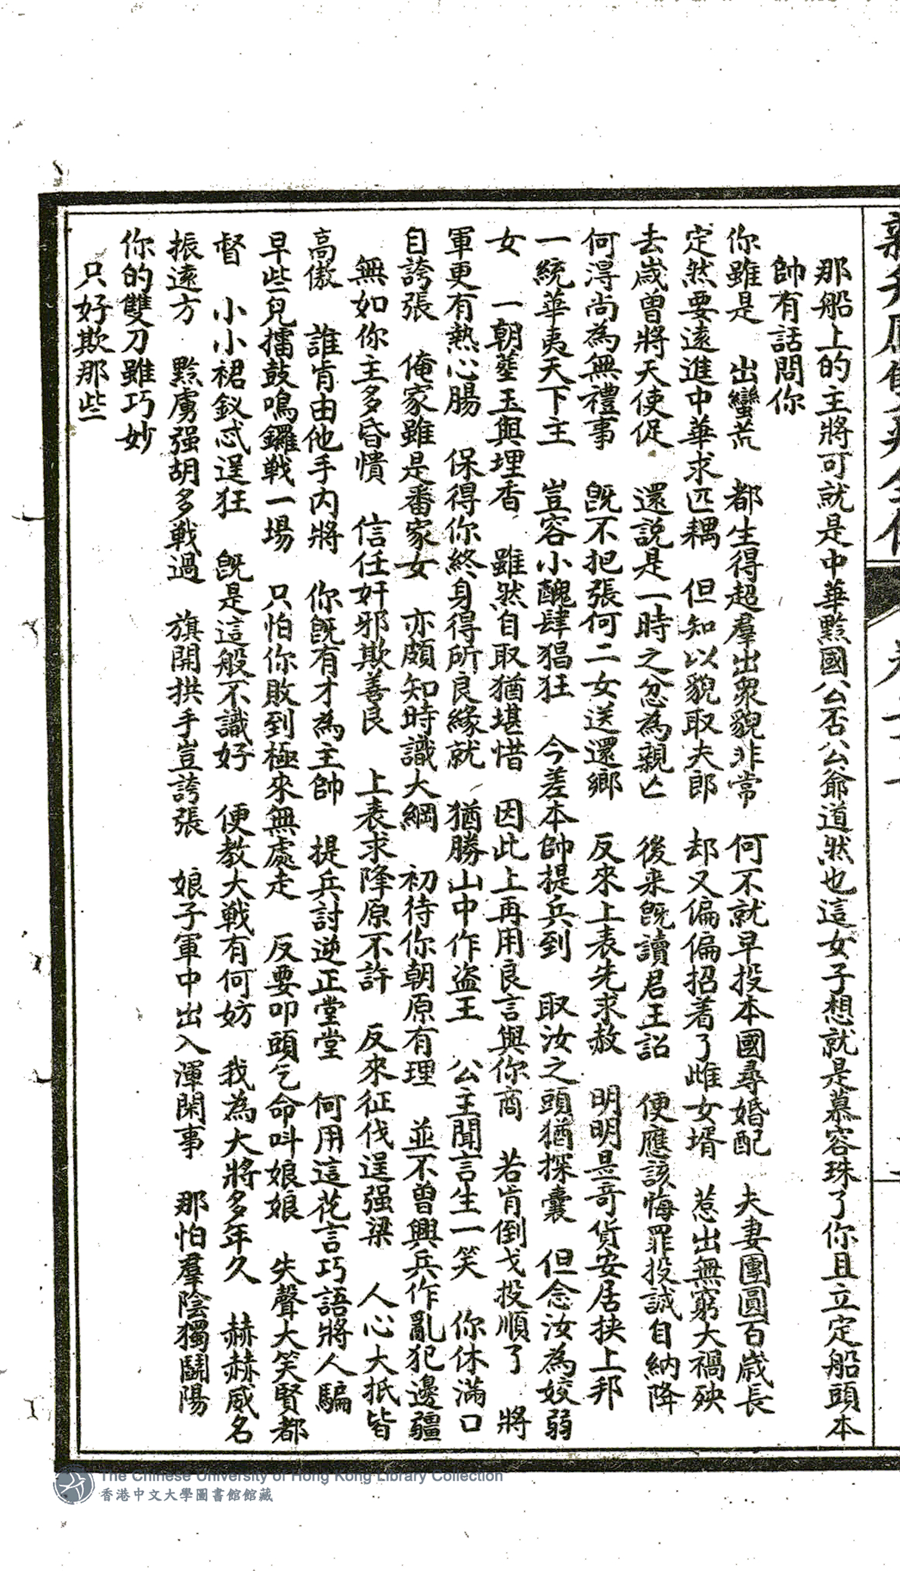 那船上的主將可就是中華黔國公否公爺道然也這女子想就是慕容珠了你且立定船頭本
帥有話問你
你雖是 出蠻荒 都生得超羣出衆貌非常 何不就早投本國尋婚配 夫妻團圓百歲長
定然要遠進中華求匹耦 但知以貌取夫郎 却又偏偏招着了雌女壻 惹出無窮大禍殃
去歲曾將天使促 還說是一時之忿為親亡 後来旣讀君王詔 便應該悔罪投誠自納降
何淂尚為無禮事 旣不把張何二女送還鄉 反來上表先求赦 明明是奇貨安居挾上邦
一統華夷天下主 豈容小醜肆猖狂 今差本帥提兵到 取汝之頭猶探囊 但念汝為姣弱
女 一朝塟玉與埋香 雖然自取猶堪惜 因此上再用良言與你商 若肯倒戈投順了 將
軍更有熱心腸 保得你終身得所良緣就 猶勝山中作盗王 公主聞言生一笑 你休滿口
自誇張 俺家雖是番家女 亦頗知時識大綱 初待你朝原有理 並不曾興兵作亂犯邊疆
無如你主多昏憒 信任奸邪欺善良 上表求降原不許 反來征伐逞强梁 人心大抵皆
高傲 誰肯由他手内將 你旣有才為主帥 提兵討逆正堂堂 何用這花言巧語將人騙
早些兒擂鼓鳴鑼戰一場 只怕你敗到極來無處走 反要叩頭乞命呌娘娘 失聲大笑賢都
督 小小裙釵忒逞狂 旣是這般不識好 便教大戰有何妨 我為大將多年久 赫赫威名
振遠方 黔虜强胡多戰過 旗開拱手豈誇張 娘子軍中出入渾閑事 那怕羣陰獨鬭陽
你的雙刀雖巧妙
只好欺那些
The Chinese University of Hong Kong Library Collection
香港中文大學圖書館館藏